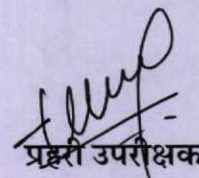 प्रहरी उपरीक्षक